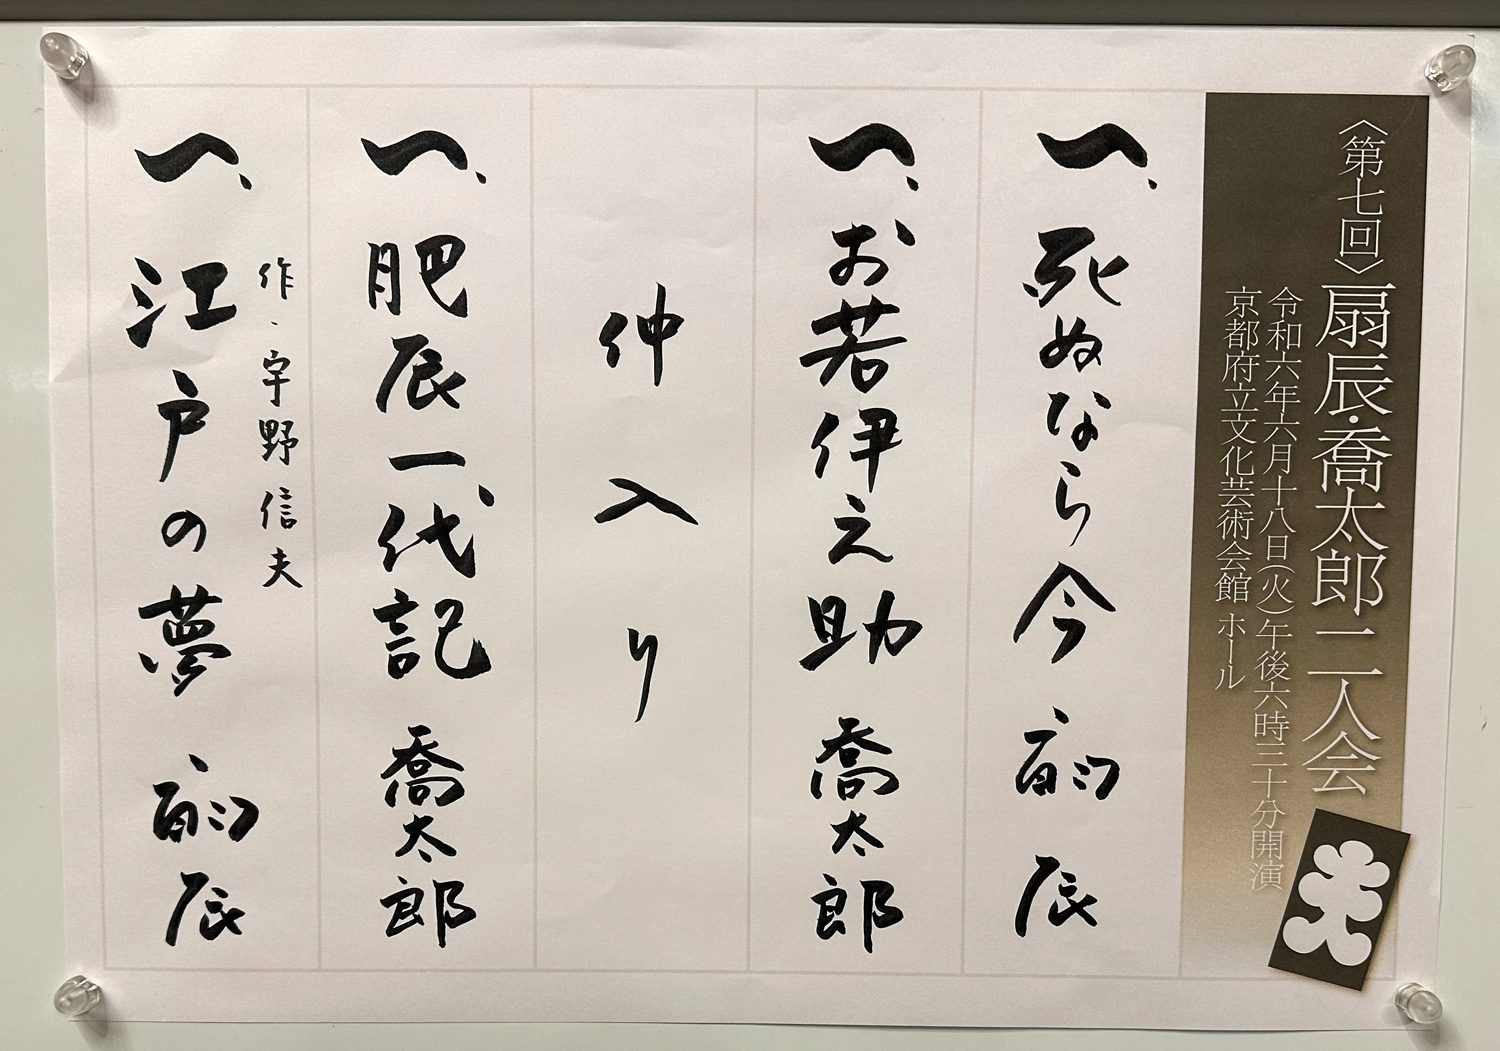 〈第七回〉扇辰・喬太郎 二人会
令和六年六月十八日(火)午後六時三十分開演
京都府立文化芸術会館 ホール
一、死ぬなら今 扇辰
一、お若伊之助 喬太郎
仲入り
一、肥辰一代記 喬太郎
作・宇野信夫
一、江戸の夢 扇辰